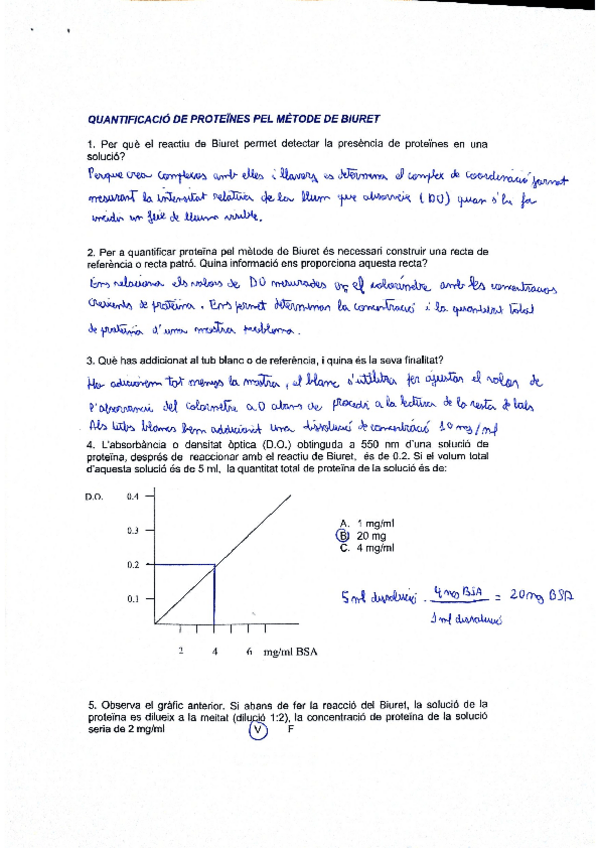 QUANTIFICACIÓ DE PROTEÏNES PEL MÈTODE DE BIURET
1. Per què el reactiu de Biuret permet detectar la presència de proteïnes en una
solució?
Perque crea complexos amb elles i llavors es determina el complex de coordinació format
mesurant la intensitat relativa de la llum que absorveix (DO) quan s'hi fa
incidir un feix de llum visible.
2. Per a quantificar proteïna pel mètode de Biuret és necesari construir una recta de
referència o recta patró. Quina informació ens proporciona aquesta recta?
Ens relaciona els valors de DO mesurades el colorímetre amb les concentracions
creixents de proteïna. Ens permet determinar la concentració i la quantitat total
de proteïna d'una mostra problema.
3. Què has addicionat al tub blanc o de referència, i quina és la seva finalitat?
Ha adicionem tot menys la mostra, el blanc s'utilitza per ajustar el valor de
l'absorvancia del colorímetre a 0 abans de procedir a la lectura de la resta de tubs
Als tubs blancs hem addicionat una dissolució de concentració 10 mg/ml
4. L'absorbància o densitat òptica (D.O.) obtinguda a 550 nm d'una solució de
proteïna, després de reaccionar amb el reactiu de Biuret, és de 0.2. Si el volum total
d'aquesta solució és de 5 ml, la quantitat total de proteïna de la solució és de:
D.O. 0.4
0.3
0.2
0.1
2 4 6 mg/ml BSA
A. 1 mg/ml
B. 20 mg
C. 4 mg/ml
5 ml dissolució · 4 mg BSA = 20 mg BSA
1 ml dissolució
5. Observa el gràfic anterior. Si abans de fer la reacció del Biuret, la solució de la
proteïna es dilueix a la meitat (dilució 1:2), la concentració de proteïna de la solució
seria de 2 mg/ml V F